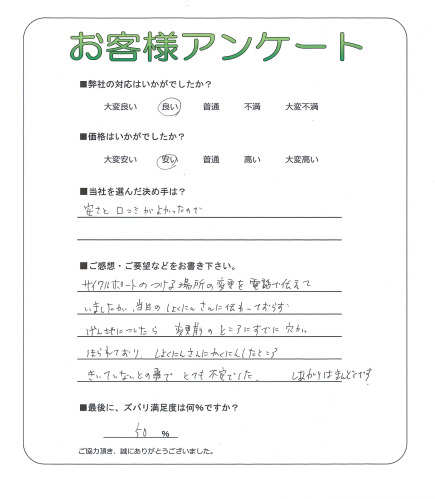 お客様アンケート
■弊社の対応はいかがでしたか？
大変良い 良い 普通 不満 大変不満
■価格はいかがでしたか？
大変安い 安い 普通 高い 大変高い
■当社を選んだ決め手は？
安さと 口コミがよかったので
■ご感想・ご要望などをお書き下さい。
サイクルポートのつける場所の変更を電話で伝えて
いましたが、当日のしょくにんさんに伝わっておらず
げんばについたら 変更前のところにすでに穴が
ほられており、しょくにんさんにかくにんしたところ
きいていないとの事で とても不安でした、 しあがりはまんぞくです
■最後に、ズバリ満足度は何％ですか？
50 ％
ご協力頂き、誠にありがとうございました。